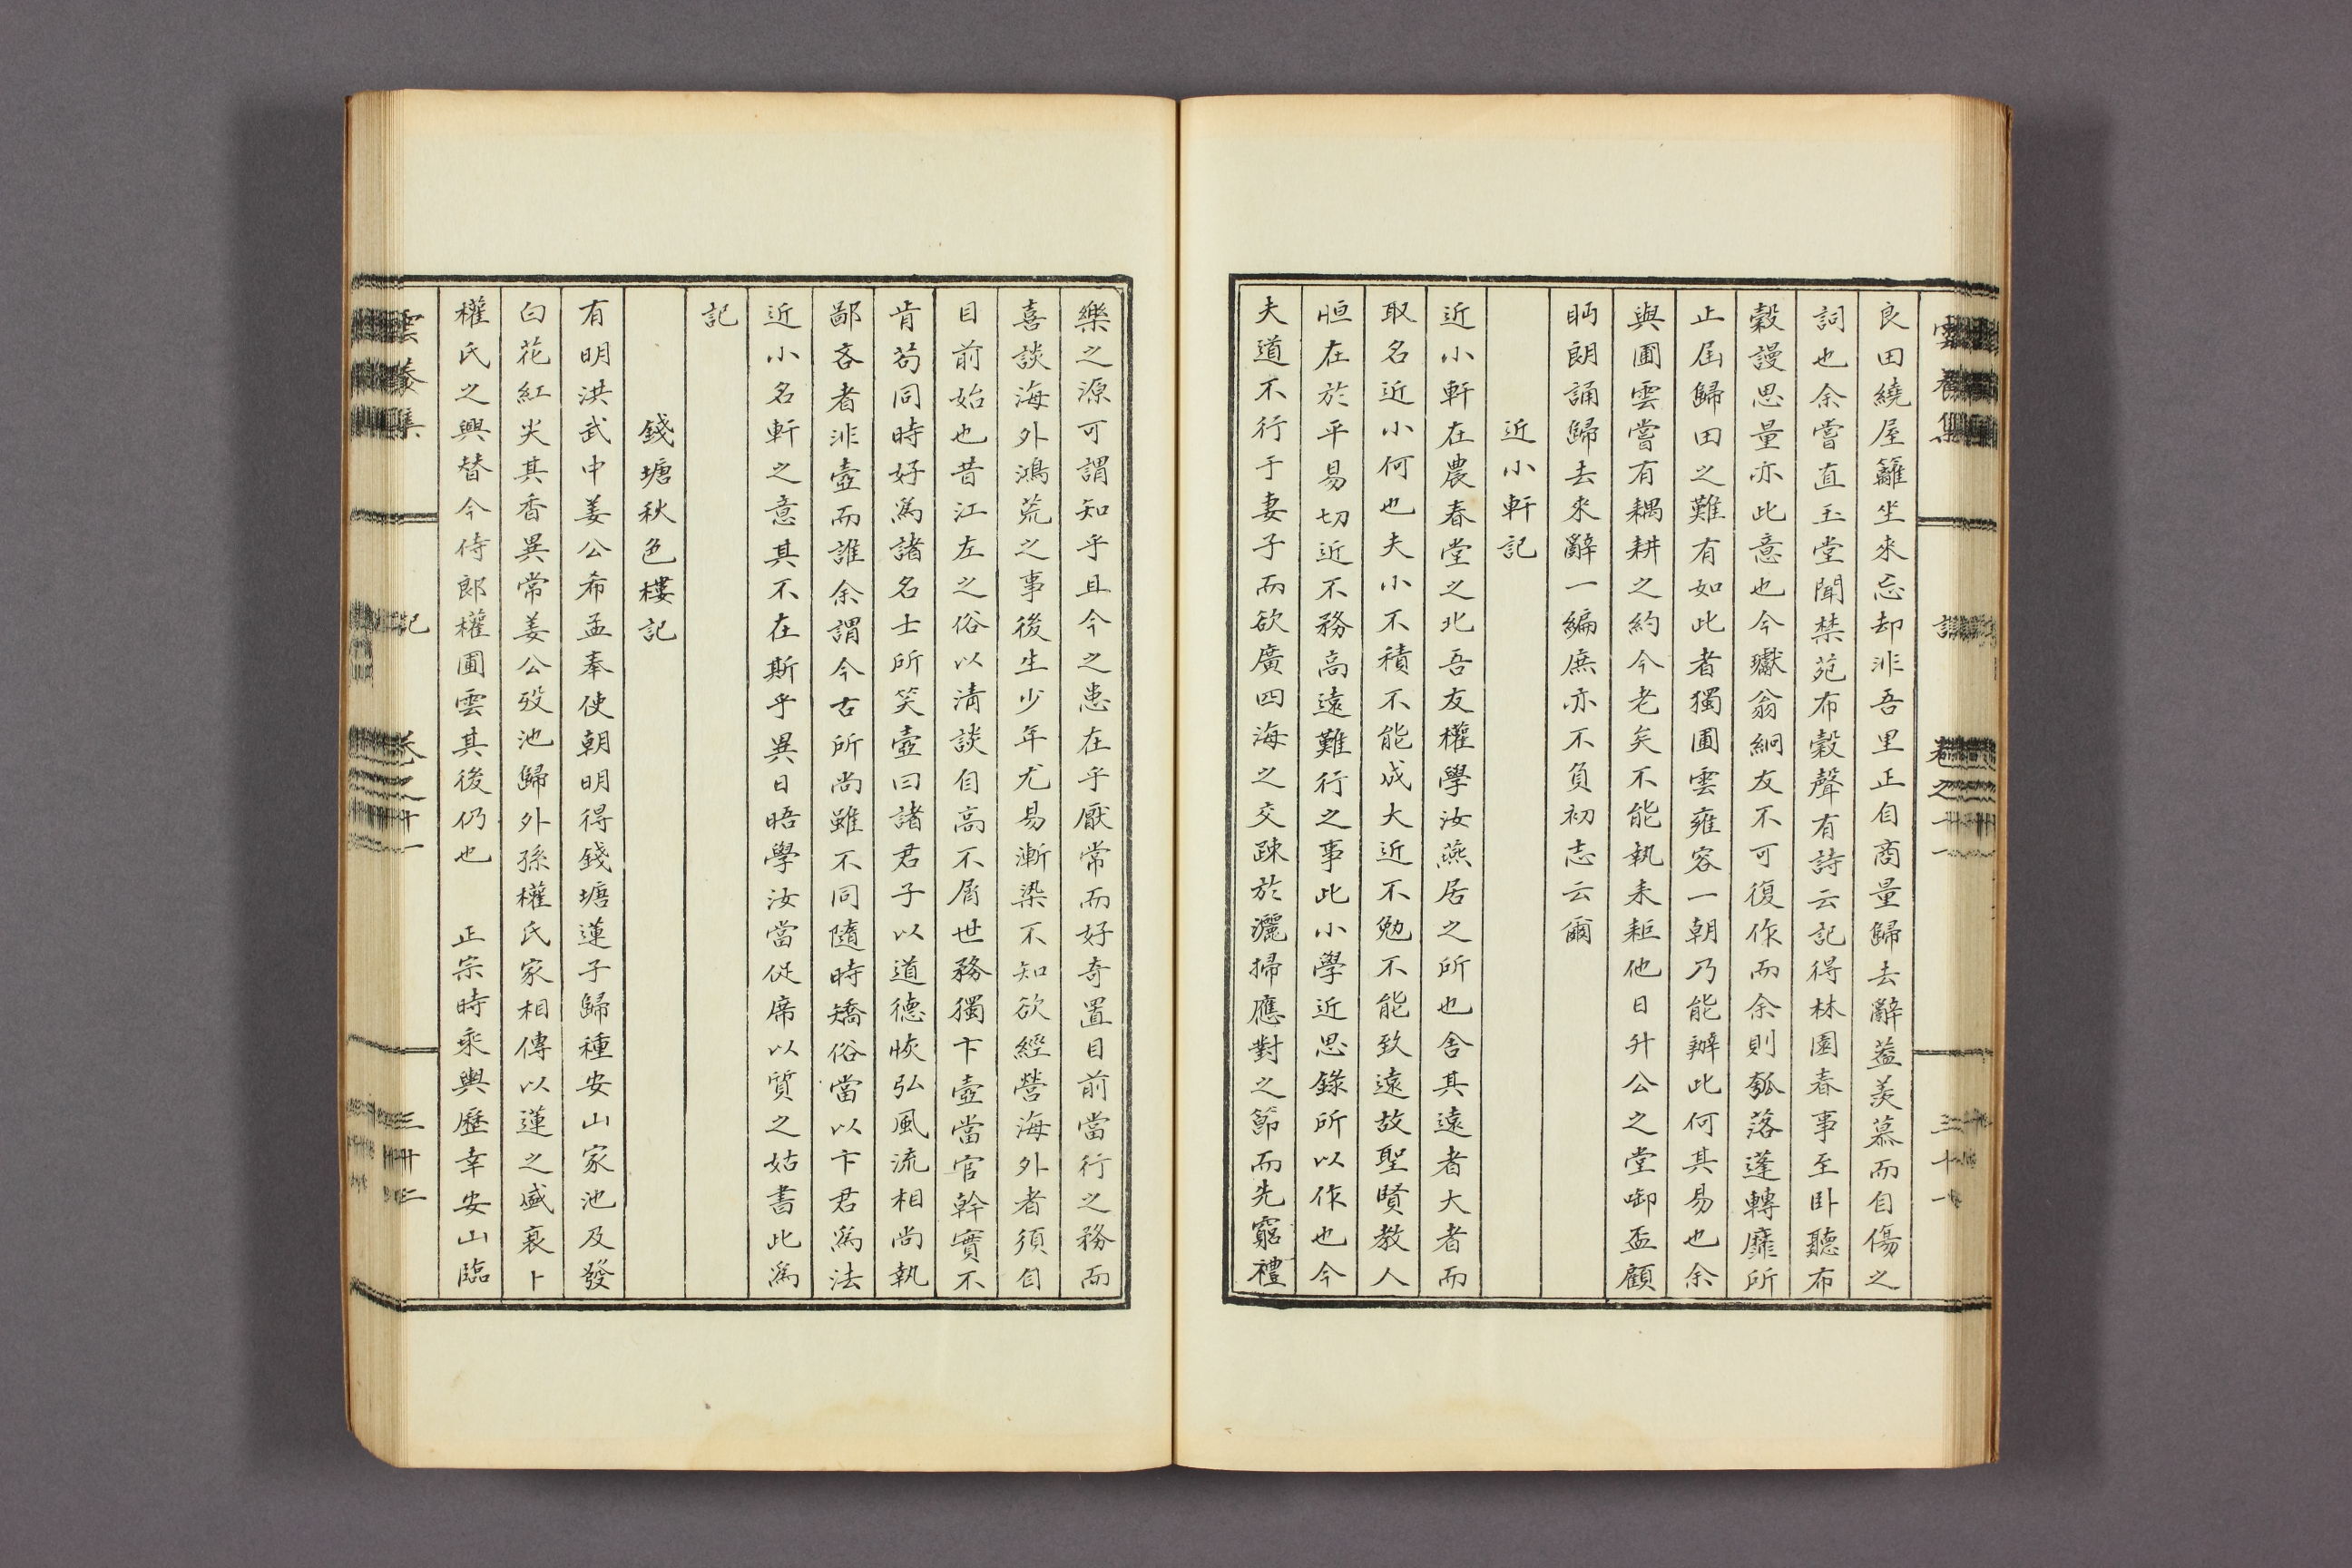 雲養集 記 卷之十一 三十一
良田繞屋籬坐來忘却非吾里正自商量歸去辭蓋羨慕而自傷之
詞也余嘗直玉堂聞禁苑布穀聲有詩云記得林園春事至卧聽布
穀謾思量亦此意也今瓛翁絅友不可復作而余則瓠落蓬轉靡所
止屆歸田之難有如此者獨圃雲雍容一朝乃能辦此何其易也余
與圃雲嘗有耦耕之約今老矣不能執耒耟他日升公之堂啣盃顧
眄朗誦歸去來辭一編庶亦不負初志云爾
近小軒記
近小軒在農春堂之北吾友權學汝燕居之所也舍其遠者大者而
取名近小何也夫小不積不能成大近不勉不能致遠故聖賢教人
恒在於平易切近不務高遠難行之事此小學近思錄所以作也今
夫道不行于妻子而欲廣四海之交疎於灑掃應對之節而先窮禮
樂之源可謂知乎且今之患在乎厭常而好奇置目前當行之務而
喜談海外鴻荒之事後生少年尤易漸染不知欲經營海外者須自
目前始也昔江左之俗以清談自高不屑世務獨卞壺當官幹實不
肯苟同時好爲諸名士所笑壺曰諸君子以道德恢弘風流相尚執
鄙吝者非壺而誰余謂今古所尚雖不同隨時矯俗當以卞君爲法
近小名軒之意其不在斯乎異日晤學汝當促席以質之姑書此爲
記
錢塘秋色樓記
有明洪武中姜公希孟奉使朝明得錢塘蓮子歸種安山家池及發
白花紅尖其香異常姜公歿池歸外孫權氏家相傳以蓮之盛衰卜
權氏之興替今侍郎權圃雲其後仍也 正宗時乘輿歷幸安山臨
雲養集 記 卷之十一 三十二